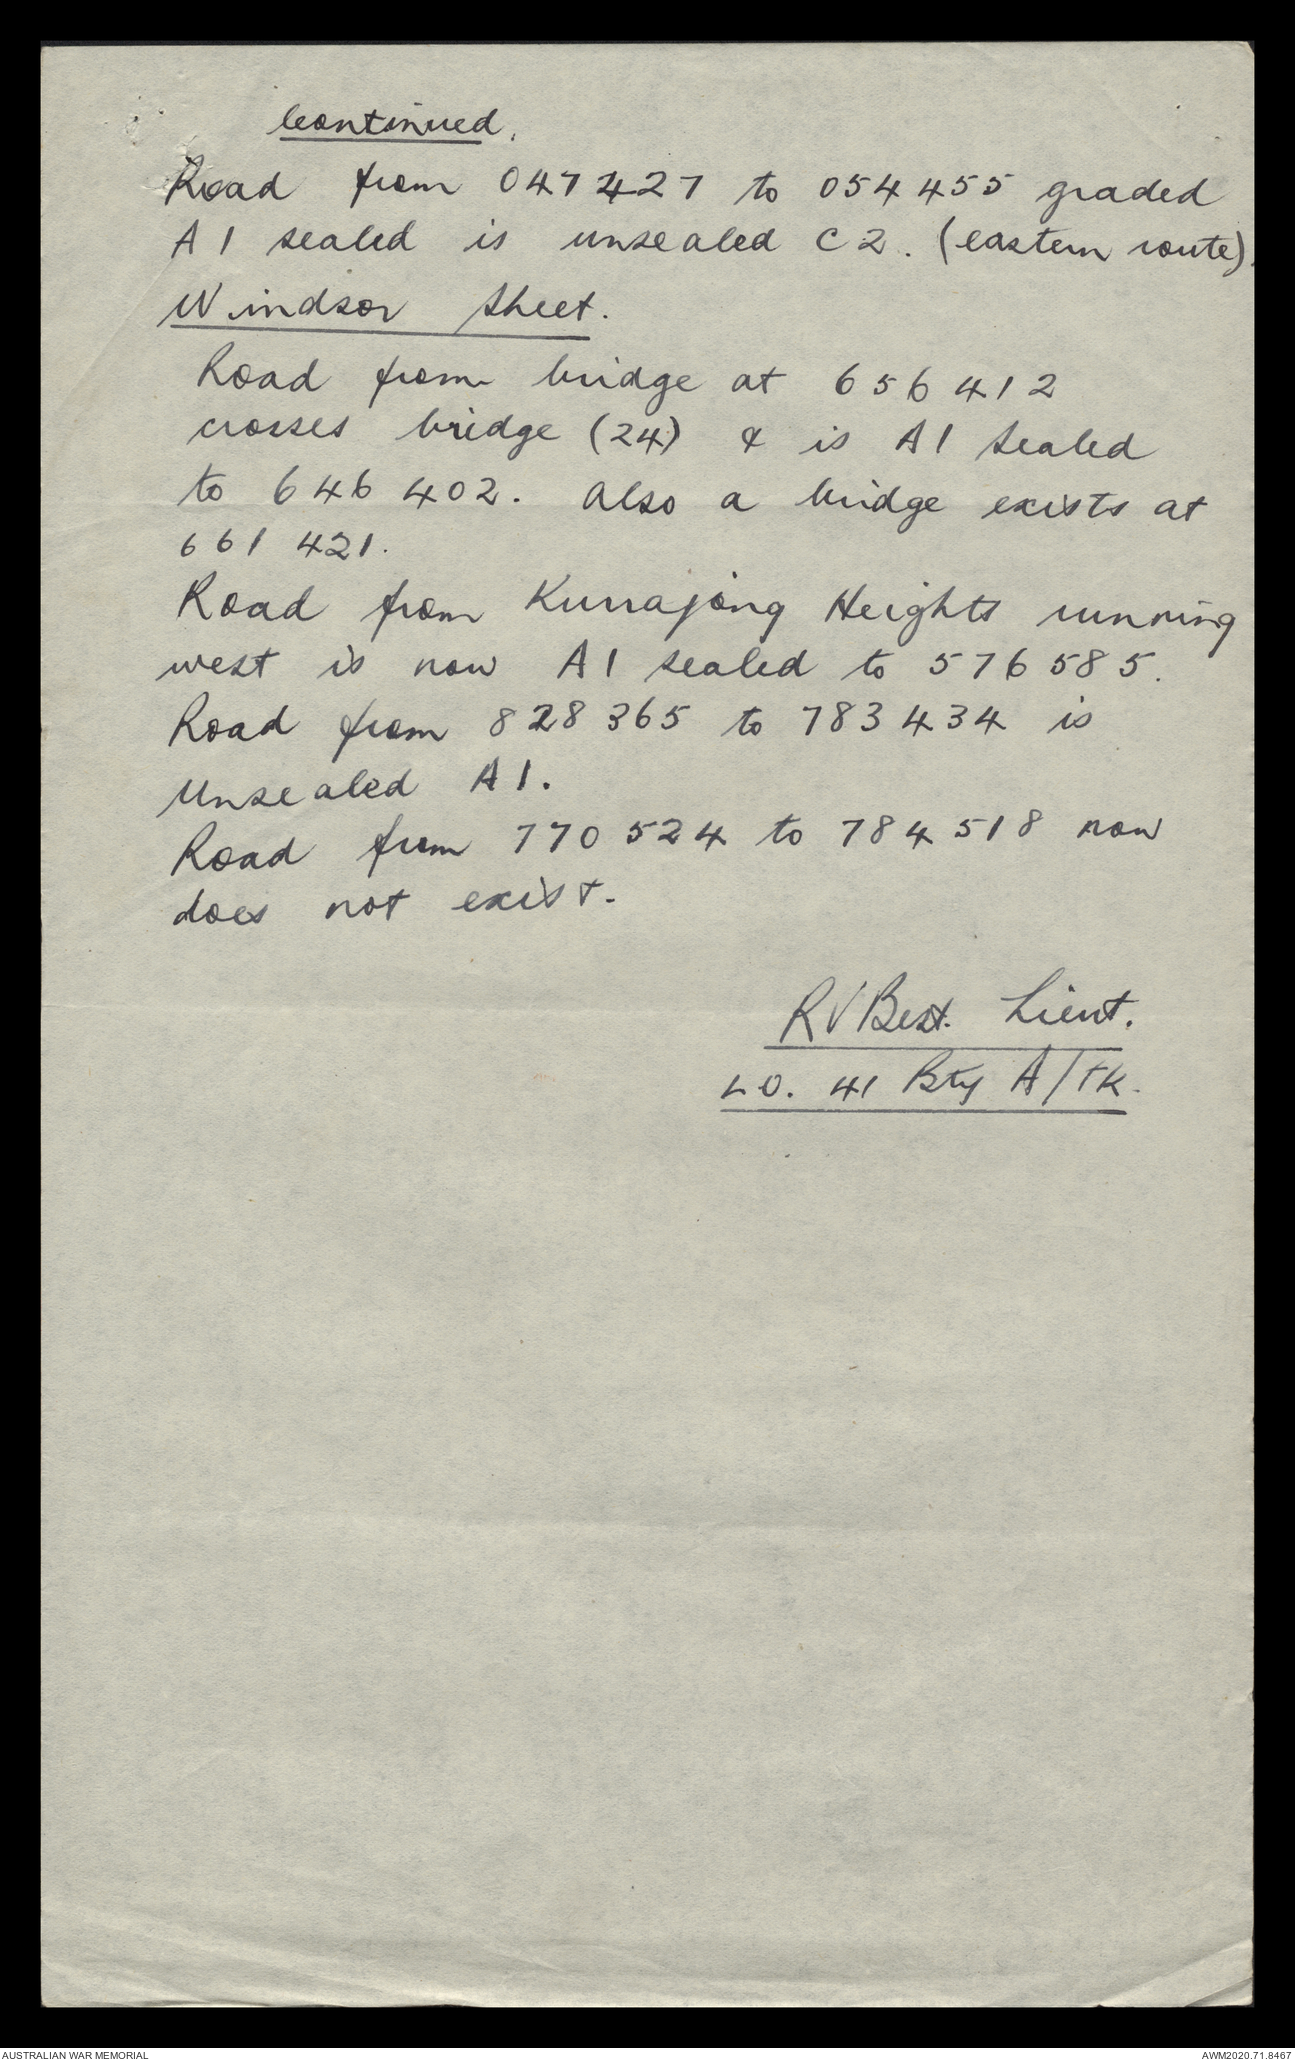 Continued.
Road from 047427 to 054455 graded
A1 sealed is unsealed C2. (eastern route).
Windsor Sheet.
Road from bridge at 656412
crosses bridge (24) & is A1 Sealed
to 646402. Also a bridge exists at
661 421.
Road from Kurrajong Heights running
west is now A1 sealed to 576585.
Road from 828365 to 783434 is
Unsealed A1.
Road from 770524 to 784518 now
does not exist.
RVBest. Lieut.
LO. 41 Bty A/TK.
AUSTRALIAN WAR MEMORIAL
AWM2020.71.8467